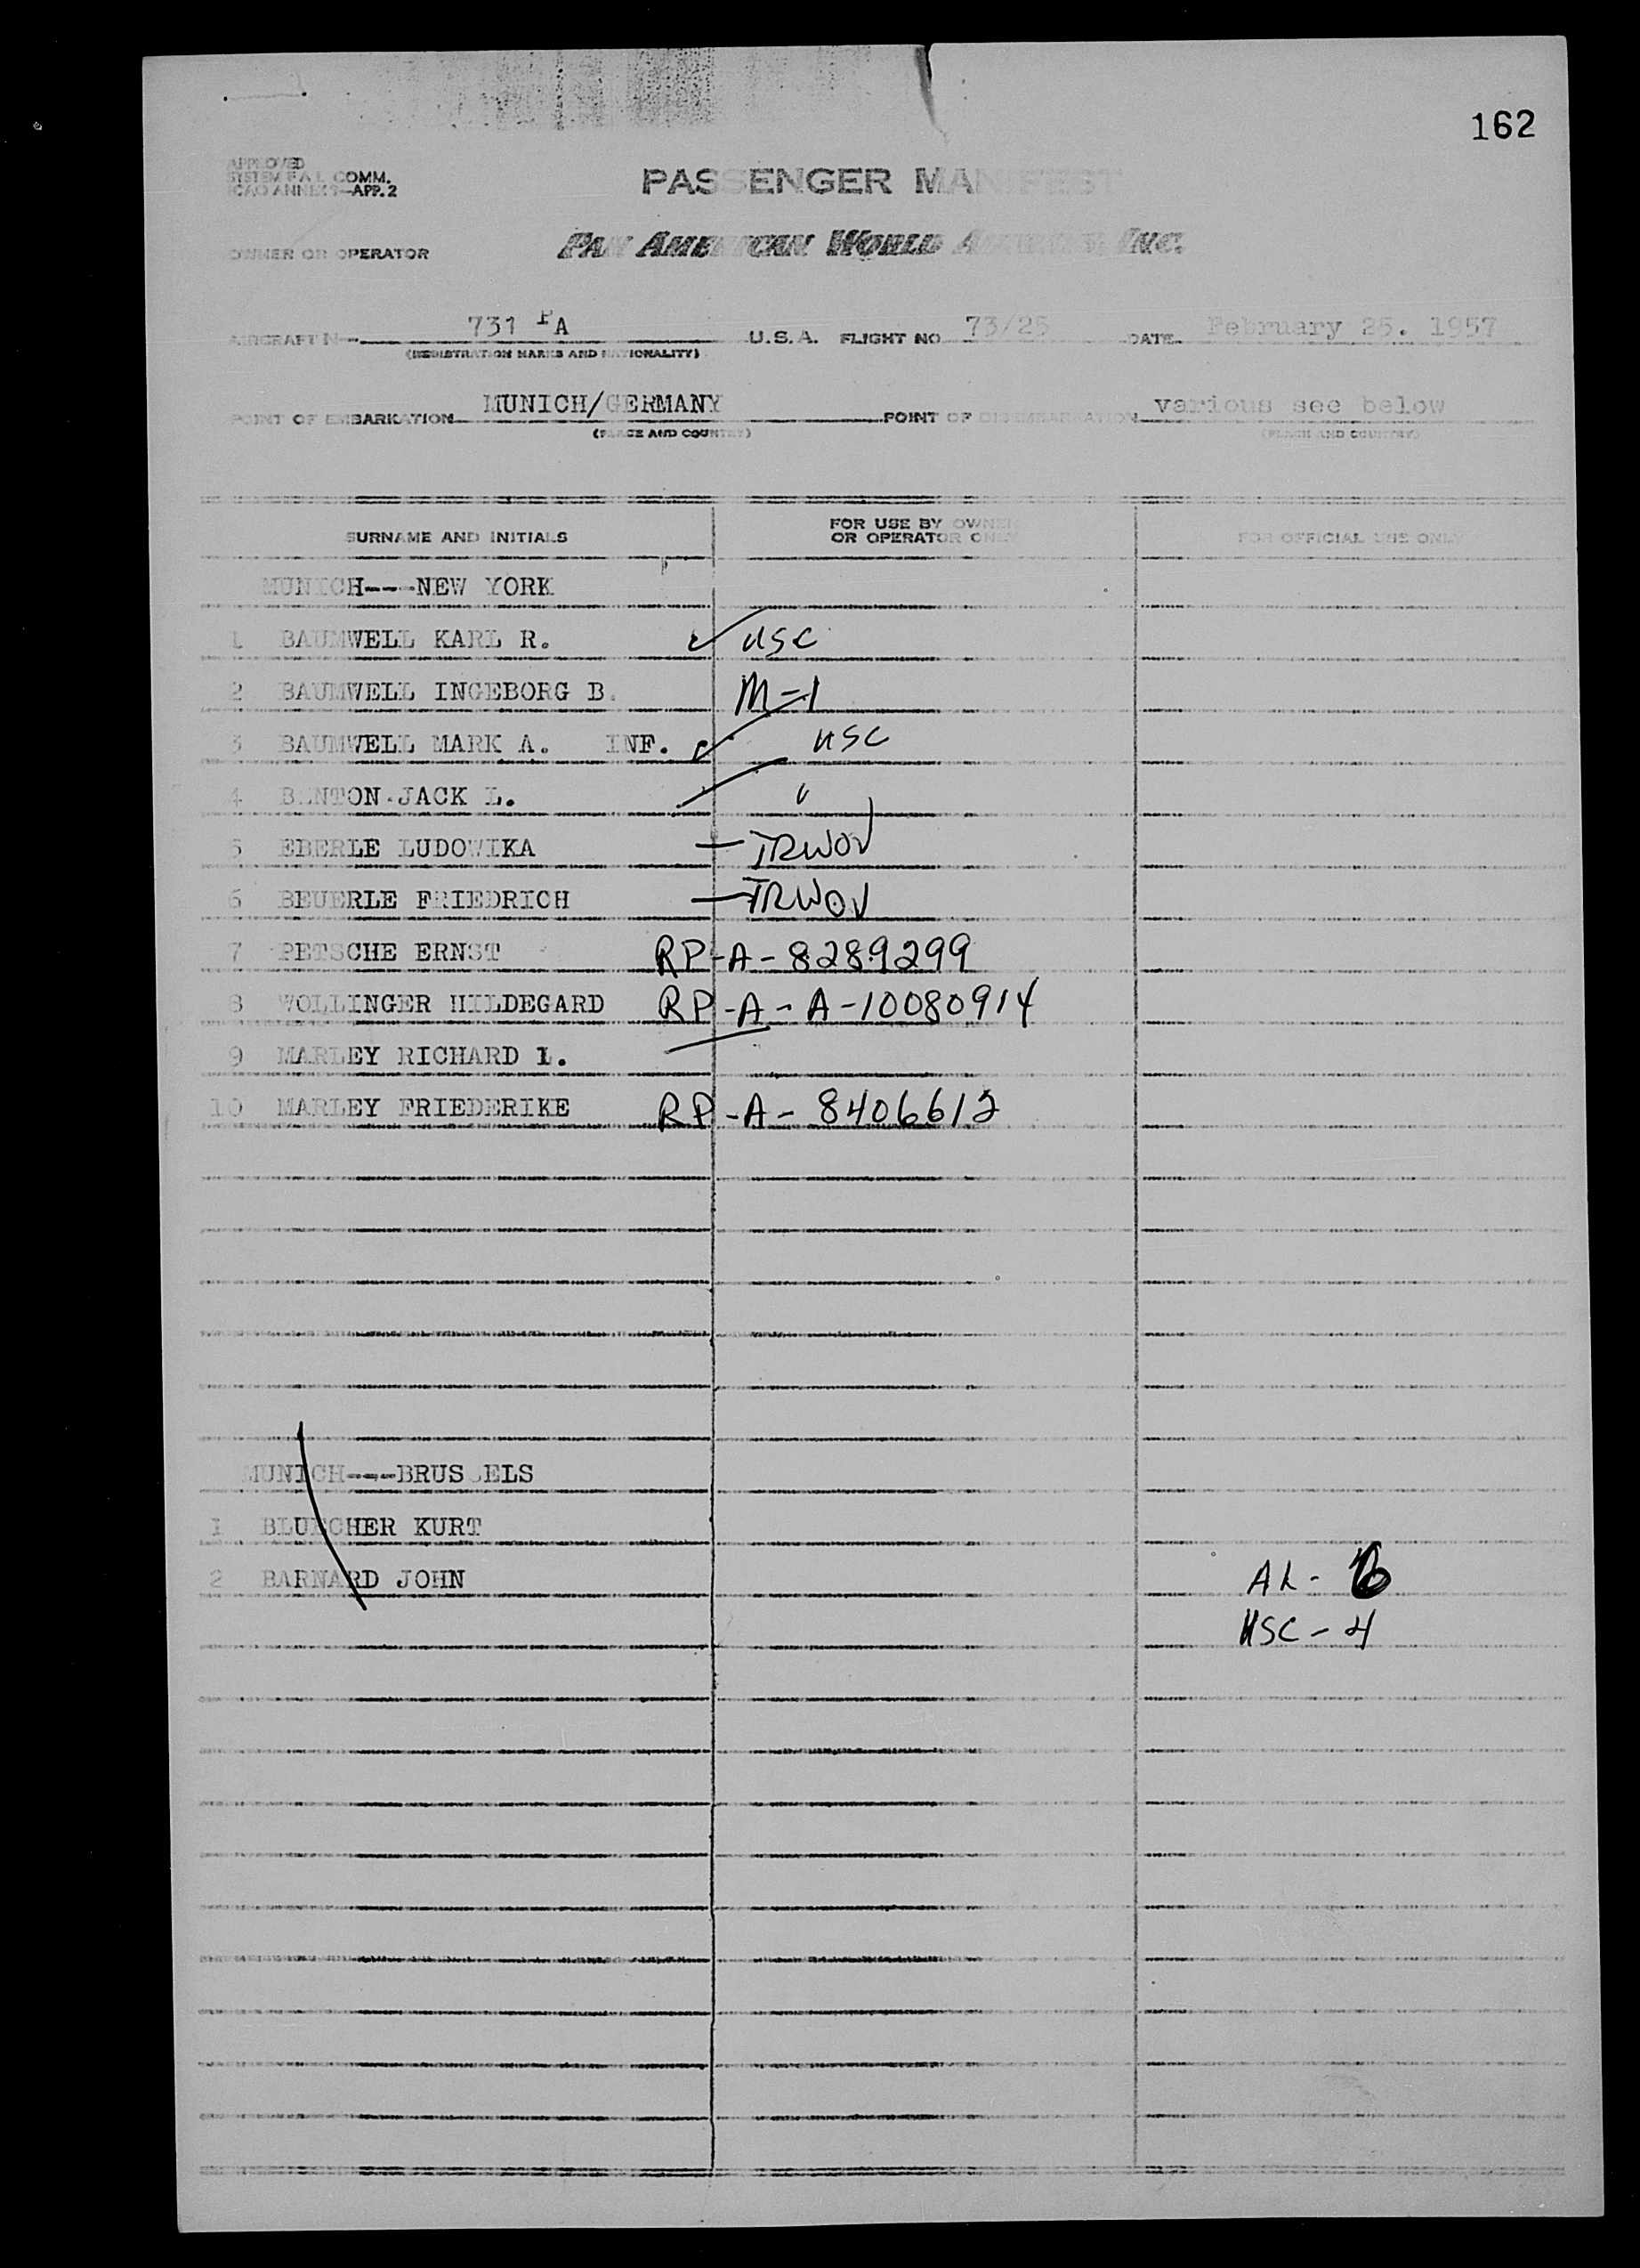 162
APPROVED
SYSTEM F.A.L. COMM.
ICAO ANNEX 9—APP. 2
PASSENGER MANIFEST
OWNER OR OPERATOR PAN AMERICAN WORLD AIRWAYS, INC.
AIRCRAFT N- 731 PA U.S.A. FLIGHT NO 73/25 DATE February 25. 1957
(REGISTRATION MARKS AND NATIONALITY)
POINT OF EMBARKATION MUNICH/GERMANY POINT OF DISEMBARKATION various see below
(PLACE AND COUNTRY) (PLACE AND COUNTRY)
SURNAME AND INITIALS FOR USE BY OWNER OR OPERATOR ONLY FOR OFFICIAL USE ONLY
MUNICH---NEW YORK
1 BAUMWELL KARL R. USC
2 BAUMWELL INGEBORG B. M-1
3 BAUMWELL MARK A. INF. USC
4 BENTON JACK L. "
5 EBERLE LUDOWIKA TRWOV
6 BEUERLE FRIEDRICH TRWOV
7 PETSCHE ERNST RP-A-8289299
8 WOLLINGER HILDEGARD RP-A-A-10080914
9 MARLEY RICHARD L.
10 MARLEY FRIEDERIKE RP-A-8406612
MUNICH---BRUSSELS
1 BLUECHER KURT
2 BARNARD JOHN
AL- 6
USC-4